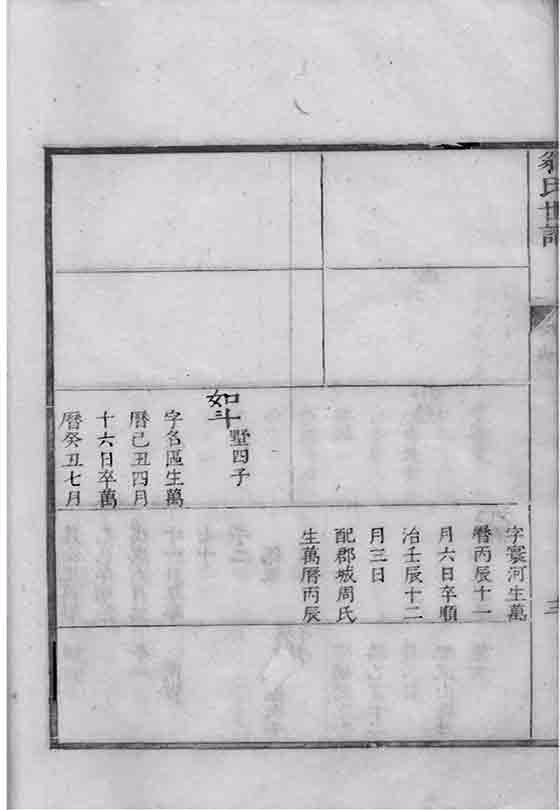 翁氏世譜
如斗
墅四子
字名區生萬
曆己丑四月
十六日卒萬
曆癸丑七月
字寰河生萬
曆丙辰十一
月六日卒順
治壬辰十二
月三日
配郡城周氏
生萬曆丙辰